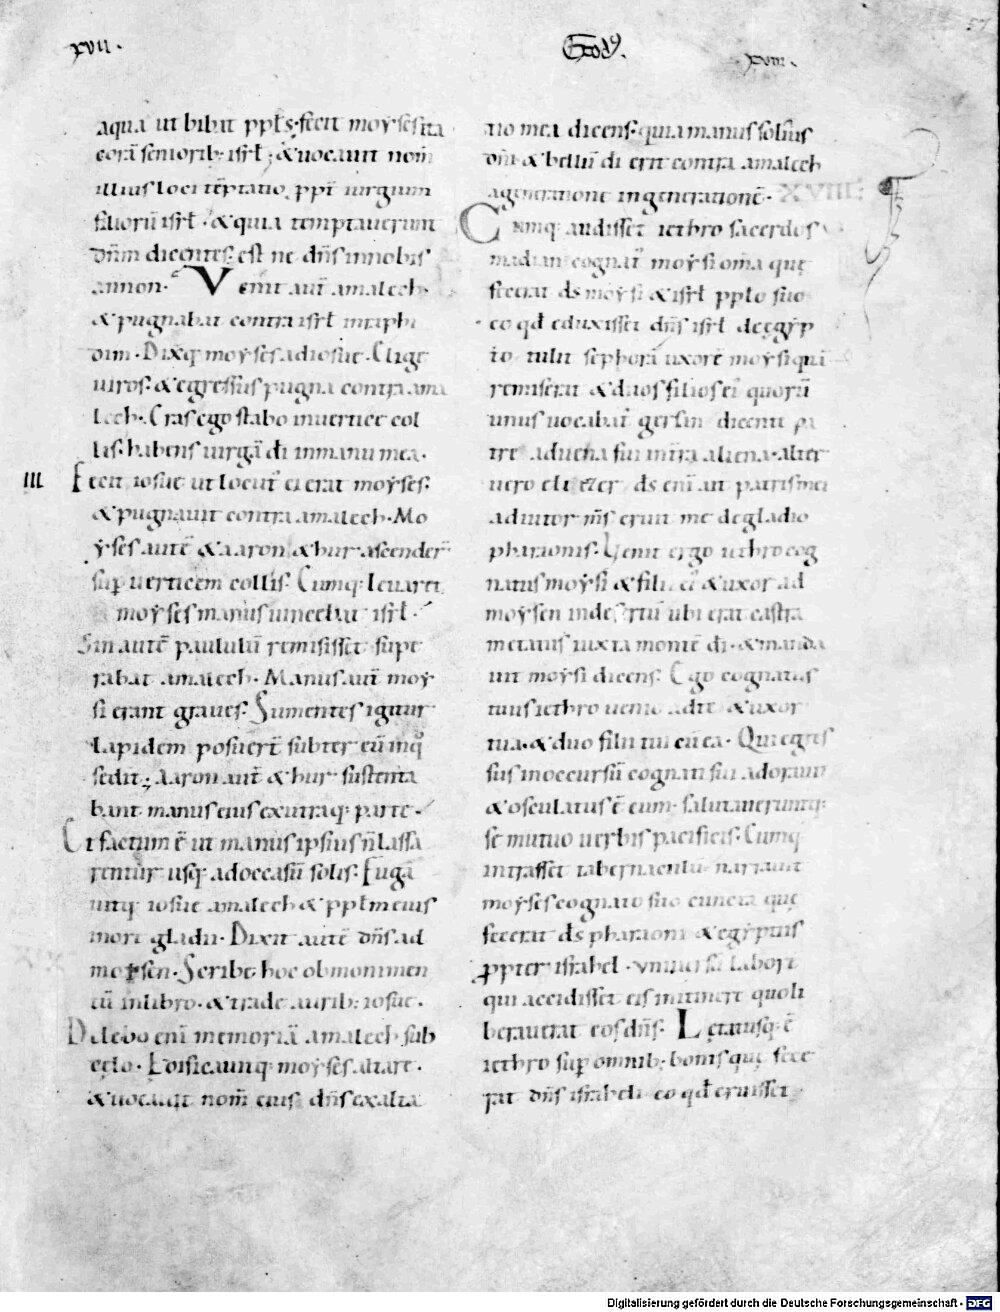 xvii.
Exodꝰ.
xviii.
57
aqua ut bibat ppłs. fecit moẏses ita
corā seniorib; isrł; & uocauit nom̄
illius loci tēptatio. ppt̄ iurgium
filiorū isrł. & quia temptauerunt
dn̄m dicentes; est ne dn̄s in nobis
an non. Venit aut̄ amalech.
& pugnabat contra isrł in raphi
dim. Dixitq; moẏses ad iosue. Elige
uiros. & egressus pugna contra ama
lech. Cras ego stabo in uertice col
lis. habens uirgā dī in manu mea.
III Fecit iosue ut locut̄ ei erat moẏses.
& pugnauit contra amalech. Mo
ẏses autē & aaron & hur ascender̄
sup̄ uerticem collis. Cumq; leuaret
moẏses manus uincebat isrł.
Sin autē paululū remisisset supe
rabat amalech. Manus aut̄ moẏ
si erant graues. Sumentes igitur
lapidem posuer̄t subter eū inq̄
sedit; aaron aut̄ & hur sustenta
bant manus eius ex utraq; parte.
Et factum ē ut manus ipsius n̄ lassa
rentur usq; ad occasū solis. Fuga
uitq; iosue amalech & ppłm eius
in ore gladii. Dixit autē dn̄s ad
moẏsen. Scribe hoc ob monimen
tū in libro. & trade aurib; iosue.
Delebo eni memoriā amalech sub
cęlo. Edificauitq; moẏses altare.
& uocauit nom̄ eius dn̄s exalta
tio mea dicens. quia manus solius
dn̄i & bellū dī erit contra amalech
a generatione in generationē. XVIII:
Cumq; audisset iethro sacerdos
madian cognat̄ moẏsi om̄a quę
fecerat ds moẏsi & isrł pplo suo
eo qđ eduxisset dn̄s isrł de ęgẏp
to. tulit sephorā uxorē moẏsi quā
remiserat & duos filios ei quorū
unus uocabat̄ gersan dicente pa
tre. aduena fui in tr̄a aliena. alter
uero eliezer. ds eni ait patris mei
adiutor m̄s eruit me de gladio
pharaonis. Uenit ergo iethro cog
natus moẏsi & filii ei & uxor ad
moẏsen in desertū ubi erat castra
metatus iuxta montē dī. & manda
uit moẏsi dicens. Ego cognatus
tuus iethro uenio ad te & uxor
tua. & duo filii tui cū ea. Qui egres
sus in occursū cognati sui adorauit
& osculatus ē eum. salutaueruntq;
se mutuo uerbis pacificis. Cumq;
intrasset tabernaculū narrauit
moẏses cognato suo cuncta quę
fecerat ds pharaoni & egẏptiis
ꝓpter israhel. uniuersū labore
qui accidisset eis in itinere quo li
berauerat eos dn̄s. Lętatusq; ē
iethro sup̄ omnib; bonis quę fece
rat dn̄s israheli. eo qđ eruisset
Digitalisierung gefördert durch die Deutsche Forschungsgemeinschaft - DFG